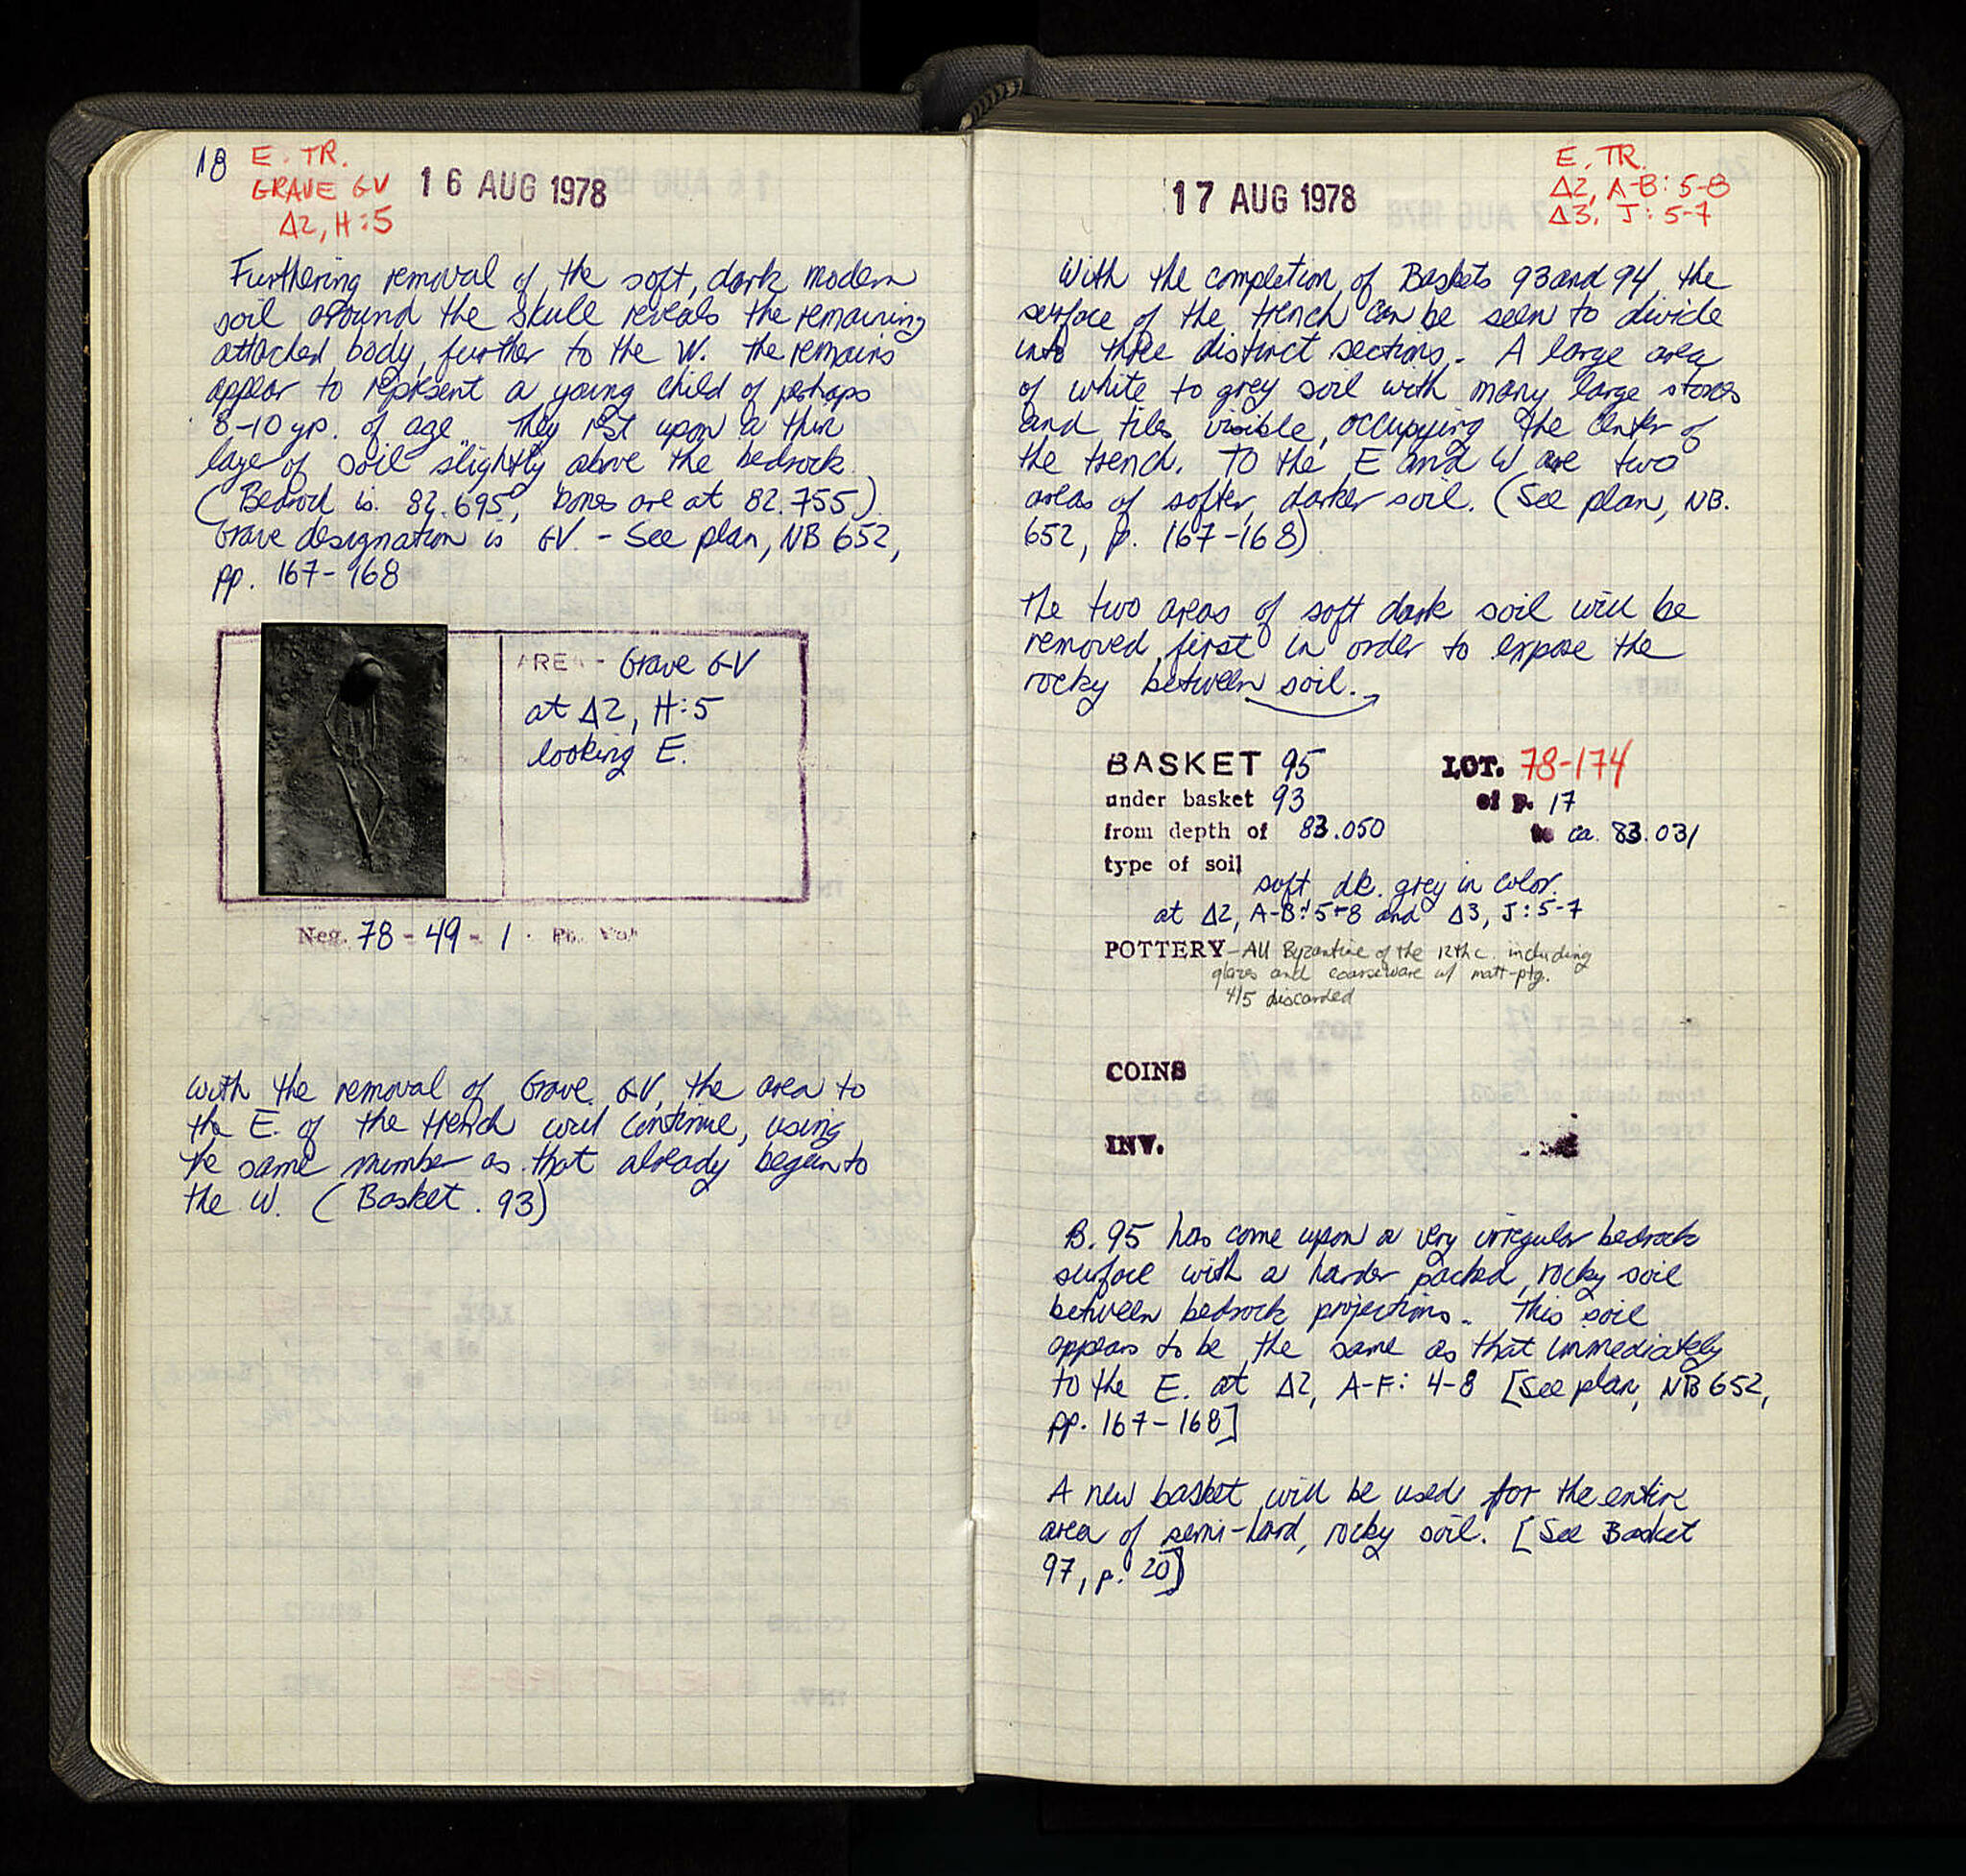 18 E. TR.
GRAVE GV
Δ2, H:5
16 AUG 1978
Furthering removal of the soft, dark modern
soil around the skull reveals the remaining
attached body, further to the W. The remains
appear to represent a young child of perhaps
8-10 yrs. of age. They rest upon a thin
layer of soil slightly above the bedrock.
(Bedrock is 82.695, bones are at 82.755).
Grave designation is GV. - See plan, NB 652,
pp. 167-168
AREA - Grave GV
at Δ2, H:5
looking E.
Neg. 78-49-1
With the removal of Grave GV, the area to
the E. of the trench will continue, using
the same number as that already begun to
the W. (Basket 93)
17 AUG 1978
E. TR.
Δ2, A-B: 5-8
Δ3, J: 5-7
With the completion of Baskets 93 and 94, the
surface of the trench can be seen to divide
into three distinct sections. A large area
of white to grey soil with many large stones
and tiles visible, occupying the center of
the trench. To the E and W are two
areas of softer, darker soil. (See plan, NB.
652, p. 167-168)
The two areas of soft dark soil will be
removed first in order to expose the
rocky between soil.
BASKET 95 LOT. 78-174
under basket 93 of p. 17
from depth of 83.050 to ca. 83.031
type of soil
soft dk. grey in color.
at Δ2, A-B: 5-8 and Δ3, J: 5-7
POTTERY - All Byzantine of the 12th c. including
glazes and coarseware w/ matt-ptg.
4/5 discarded
COINS
INV.
B. 95 has come upon a very irregular bedrock
surface with a harder packed, rocky soil
between bedrock projections. This soil
appears to be the same as that immediately
to the E. at Δ2, A-F: 4-8 [See plan, NB 652,
pp. 167-168]
A new basket will be used for the entire
area of semi-hard, rocky soil. [See Basket
97, p. 20]